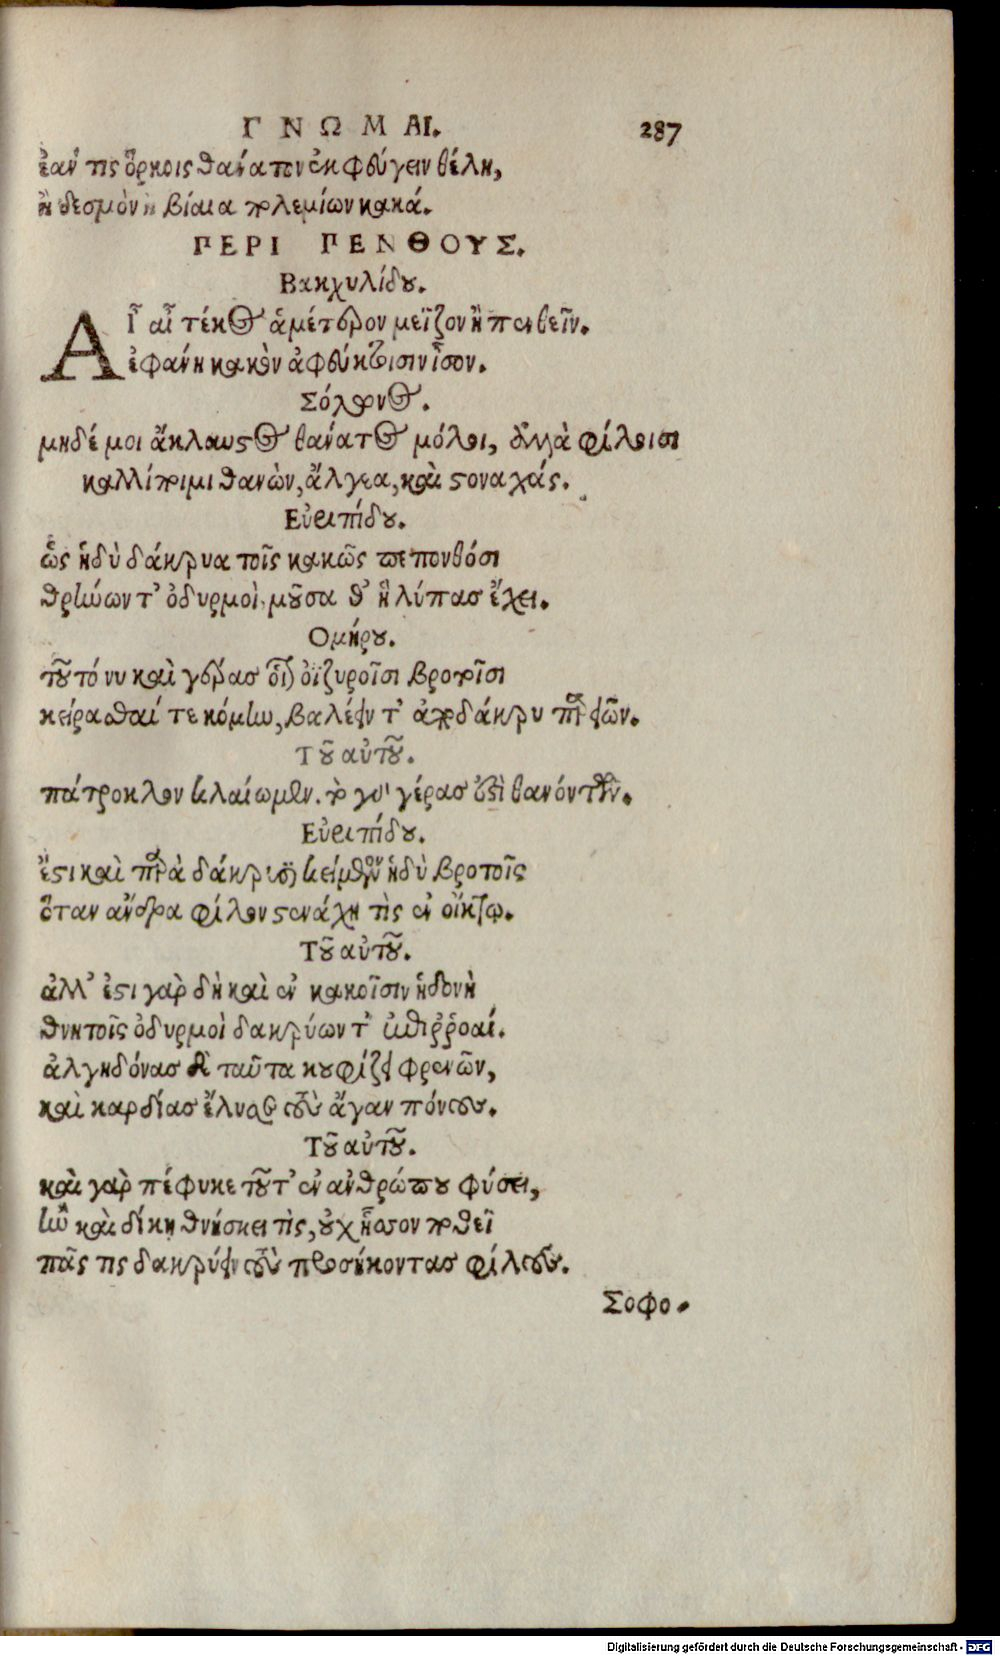 ΓΝΩΜΑΙ. 287
ἐάν τις ὅρκοις θανάτον ἐκφεύγειν θέλη,
ἢ δεσμὸν ἢ βίαια πολεμίων κακά.
ΠΕΡΙ ΠΕΝΘΟΥΣ.
Βακχυλίδου.
ΑἾ αἶ τέκος ἀμέτερον μεῖζον ἢ πενθεῖν.
ἐφάνη κακὸν ἀφθέγκτοισιν ἶσον.
Σόλωνος.
μηδέ μοι ἄκλαυστος θανάτος μόλοι, ἀλλὰ φίλοισι
καλλίποιμι θανὼν, ἄλγεα, καὶ στοναχάς.
Εὐριπίδου.
ὡς ἡδὺ δάκρυα τοῖς κακῶς πεπονθόσι
θρήνων τ’ ὀδυρμοὶ, μοῦσα θ’ ἣ λύπας ἔχει.
Ομήρου.
τοῦτό νυ καὶ γέρας οἶον ὀϊζυροῖσι βροτοῖσι
κείρασθαί τε κόμην, βαλέειν τ’ ἀπὸ δάκρυ παρειῶν.
Τοῦ αὐτοῦ.
πάτροκλον κλαίωμεν. ὃ γὰρ γέρας ἐστὶ θανόντων.
Εὐριπίδου.
ἔστι καὶ παρὰ δάκρυσι κείμενον ἡδὺ βροτοῖς
ὅταν ἄνδρα φίλον στενάχη τὶς ἐν οἴκτῳ.
Τοῦ αὐτοῦ.
ἀλλ’ ἔστι γὰρ δὴ καὶ ἐν κακοῖσιν ἡδονὴ
θνητοῖς ὀδυρμοὶ δακρύων τ’ ἐπιῤῥοαί.
ἀλγηδόνας δὲ ταῦτα κουφίζει φρενῶν,
καὶ καρδίας ἔλυσε τοὺς ἄγαν πόνους.
Τοῦ αὐτοῦ.
καὶ γὰρ πέφυκε τοῦτ’ ἐν ἀνθρώπου φύσει,
ἢν καὶ δίκη θνήσκει τὶς, οὐχ ἧσσον ποθεῖ
πᾶς τις δακρύειν τοὺς προσήκοντας φίλους.
Σοφο.
Digitalisierung gefördert durch die Deutsche Forschungsgemeinschaft - DFG